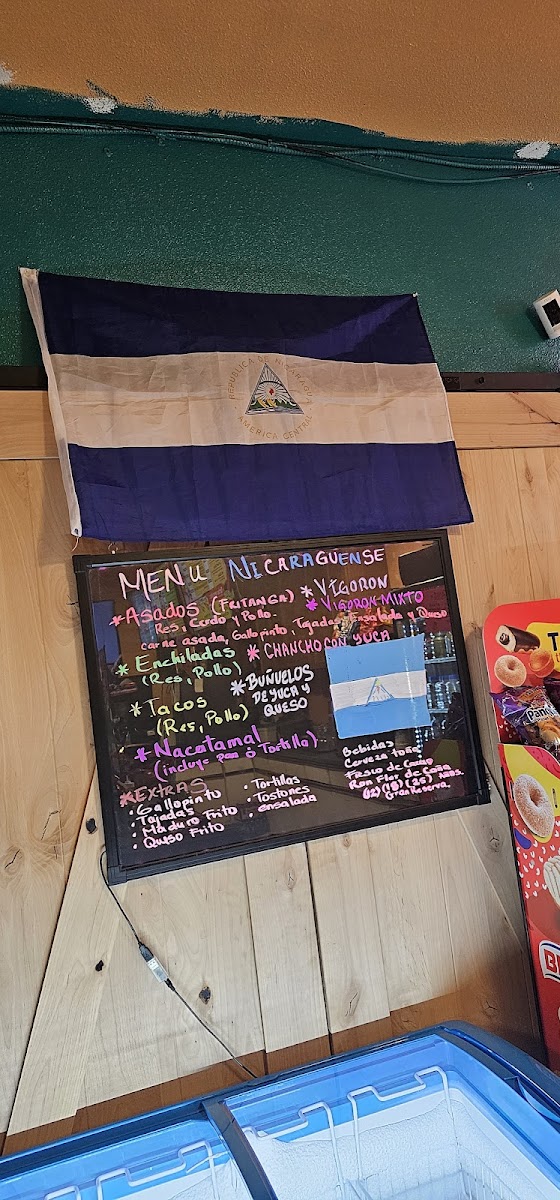 REPUBLICA DE NICARAGUA
AMERICA CENTRAL
MENU NICARAGUENSE
*ASADOS (FRITANGA)
Res, Cerdo y Pollo.
carne asada, Gallopinto, Tajadas, Ensalada y Queso
*Enchiladas
(Res, Pollo)
*Tacos
(Res, Pollo)
*Nacatamal
(incluye pan ó Tortilla)
*VIGORON
*VIGORON MIXTO
*CHANCHO CON YUCA
*BUÑUELOS
DE YUCA Y
QUESO
*EXTRAS
• Gallopinto
• Tajadas
• Maduro Frito
• Queso Frito
• Tortillas
• Tostones
• ensalada
Bebidas
Cerveza toña
Fresco de Cacao
Ron Flor de Caña
(12) (18) (25) Años
Gran Reserva